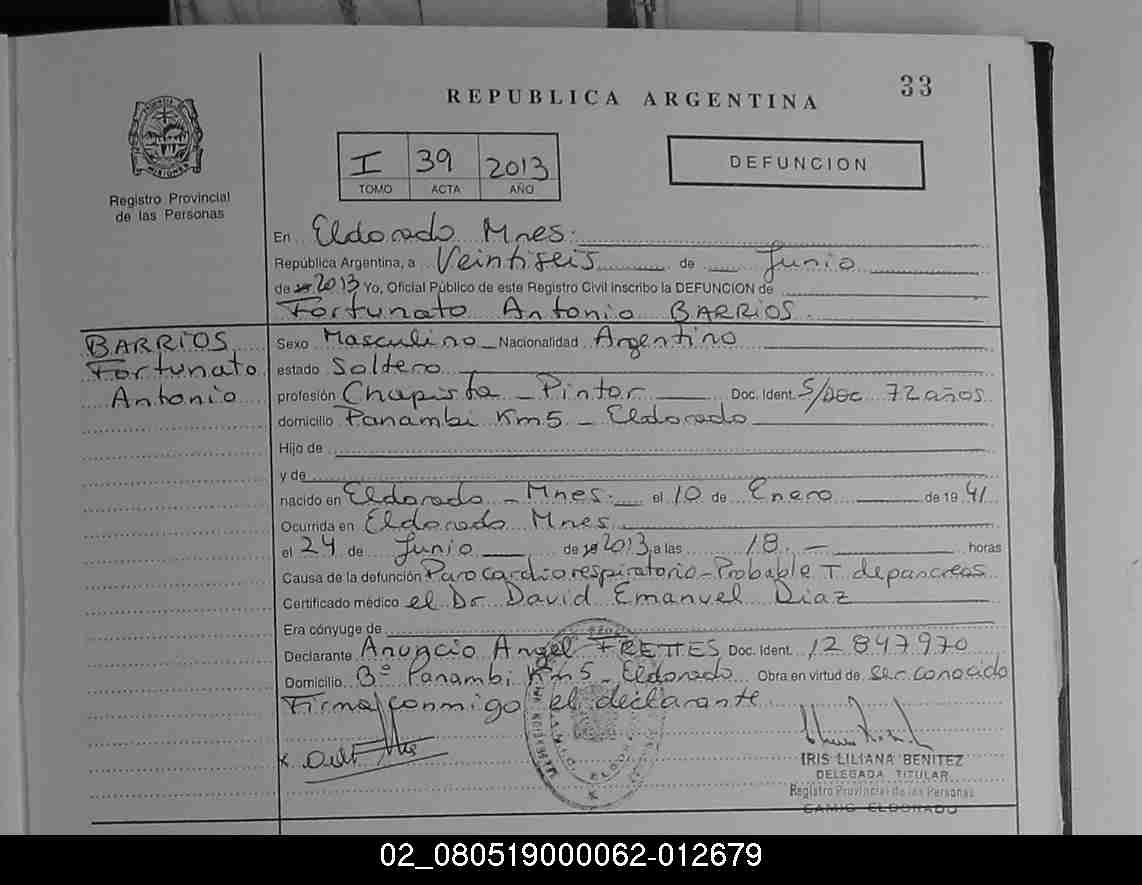 33
REPUBLICA ARGENTINA
I 39 2013
TOMO ACTA AÑO
DEFUNCION
MISIONES
Registro Provincial
de las Personas
En Eldorado Mnes.
República Argentina, a Veintiseis de Junio
de 2013 Yo, Oficial Público de este Registro Civil inscribo la DEFUNCION de
Fortunato Antonio BARRIOS
BARRIOS
Fortunato
Antonio
Sexo Masculino Nacionalidad Argentino
estado Soltero
profesión Chapista - Pintor Doc. Ident. S/Doc 72 años
domicilio Panambi Km5 - Eldorado
Hijo de
y de
nacido en Eldorado - Mnes. el 10 de Enero de 19 41
Ocurrida en Eldorado Mnes
el 24 de Junio de 2013 a las 18 - horas
Causa de la defunción Paro cardiorespiratorio - Probable T. de pancreas
Certificado médico el Dr David Emanuel Diaz
Era cónyuge de
Declarante Anuncio Angel FRETTES Doc. Ident. 12.847.970
Domicilio B° Panambi Km5 - Eldorado Obra en virtud de ser conocido
Firma conmigo el declarante
IRIS LILIANA BENITEZ
DELEGADA TITULAR
Registro Provincial de las Personas
CAMIG ELDORADO
02_080519000062-012679